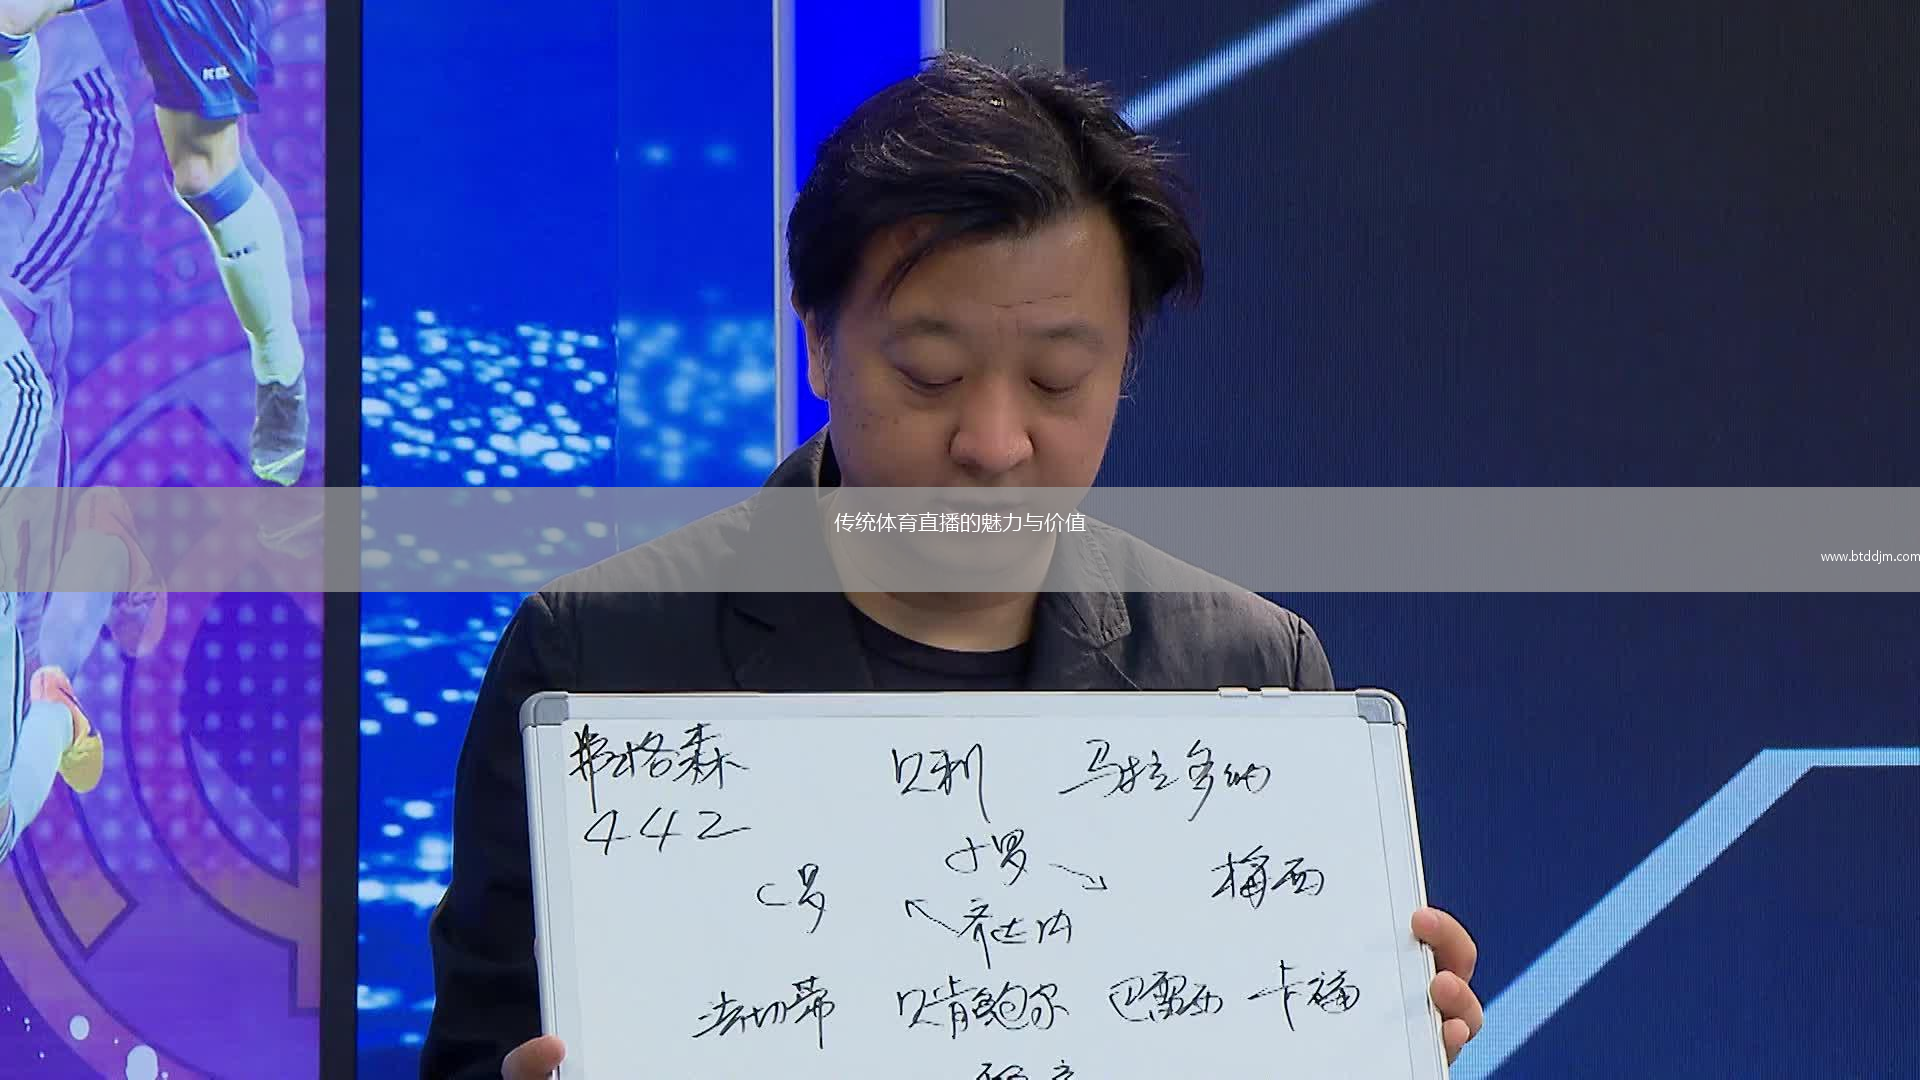 KEL
传统体育直播的魅力与价值
www.btddjm.com
弗格森 贝利 马拉多纳
442
小罗
C罗 梅西
齐达内
法切蒂 贝肯鲍尔 巴雷西 卡福